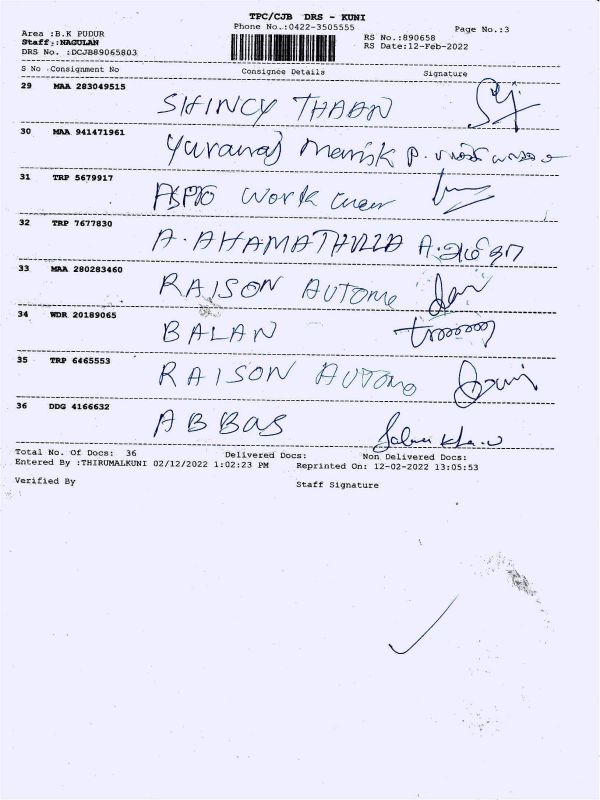 TPC/CJB DRS - KUNI
Phone No.:0422-3505555 Page No.:3
Area :B.K PUDUR RS No.:890658
Staff :NAGULAN RS Date:12-Feb-2022
DRS No. :DCJB89065803
S No Consignment No Consignee Details Signature
29 MAA 283049515 SHINCY THABN
30 MAA 941471961 Yuvaraj Manik P.
31 TRP 5679917 Work
32 TRP 7677830 A. AHAMATHULLA A.
33 MAA 280283460 RAISON AUTOMO
34 WDR 20189065 BALAN
35 TRP 6465553 RAISON AUTOMO
36 DDG 4166632 ABBAS
Total No. Of Docs: 36 Delivered Docs: Non Delivered Docs:
Entered By :THIRUMALKUNI 02/12/2022 1:02:23 PM Reprinted On: 12-02-2022 13:05:53
Verified By Staff Signature